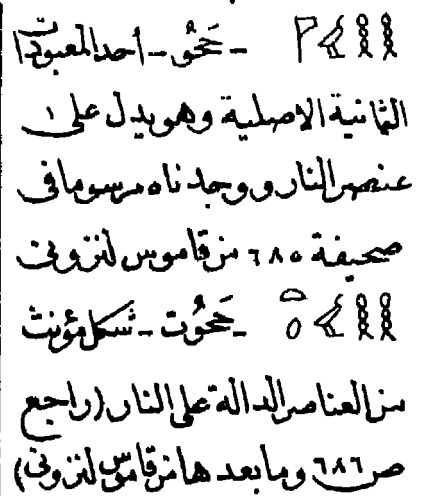 𓎛𓎛𓅱𓊹 - حَحُو - أحد المعبودات
الثمانية الاصلية وهو يدل على
عنصر النار ووجدناه مرسوما فى
صحيفة ٦٨٥ من قاموس لنزونى
- حَحُوت - شكل مؤنث
من العناصر الدالة على النار (راجع
ص ٦٨٦ وما بعدها من قاموس لنزونى)